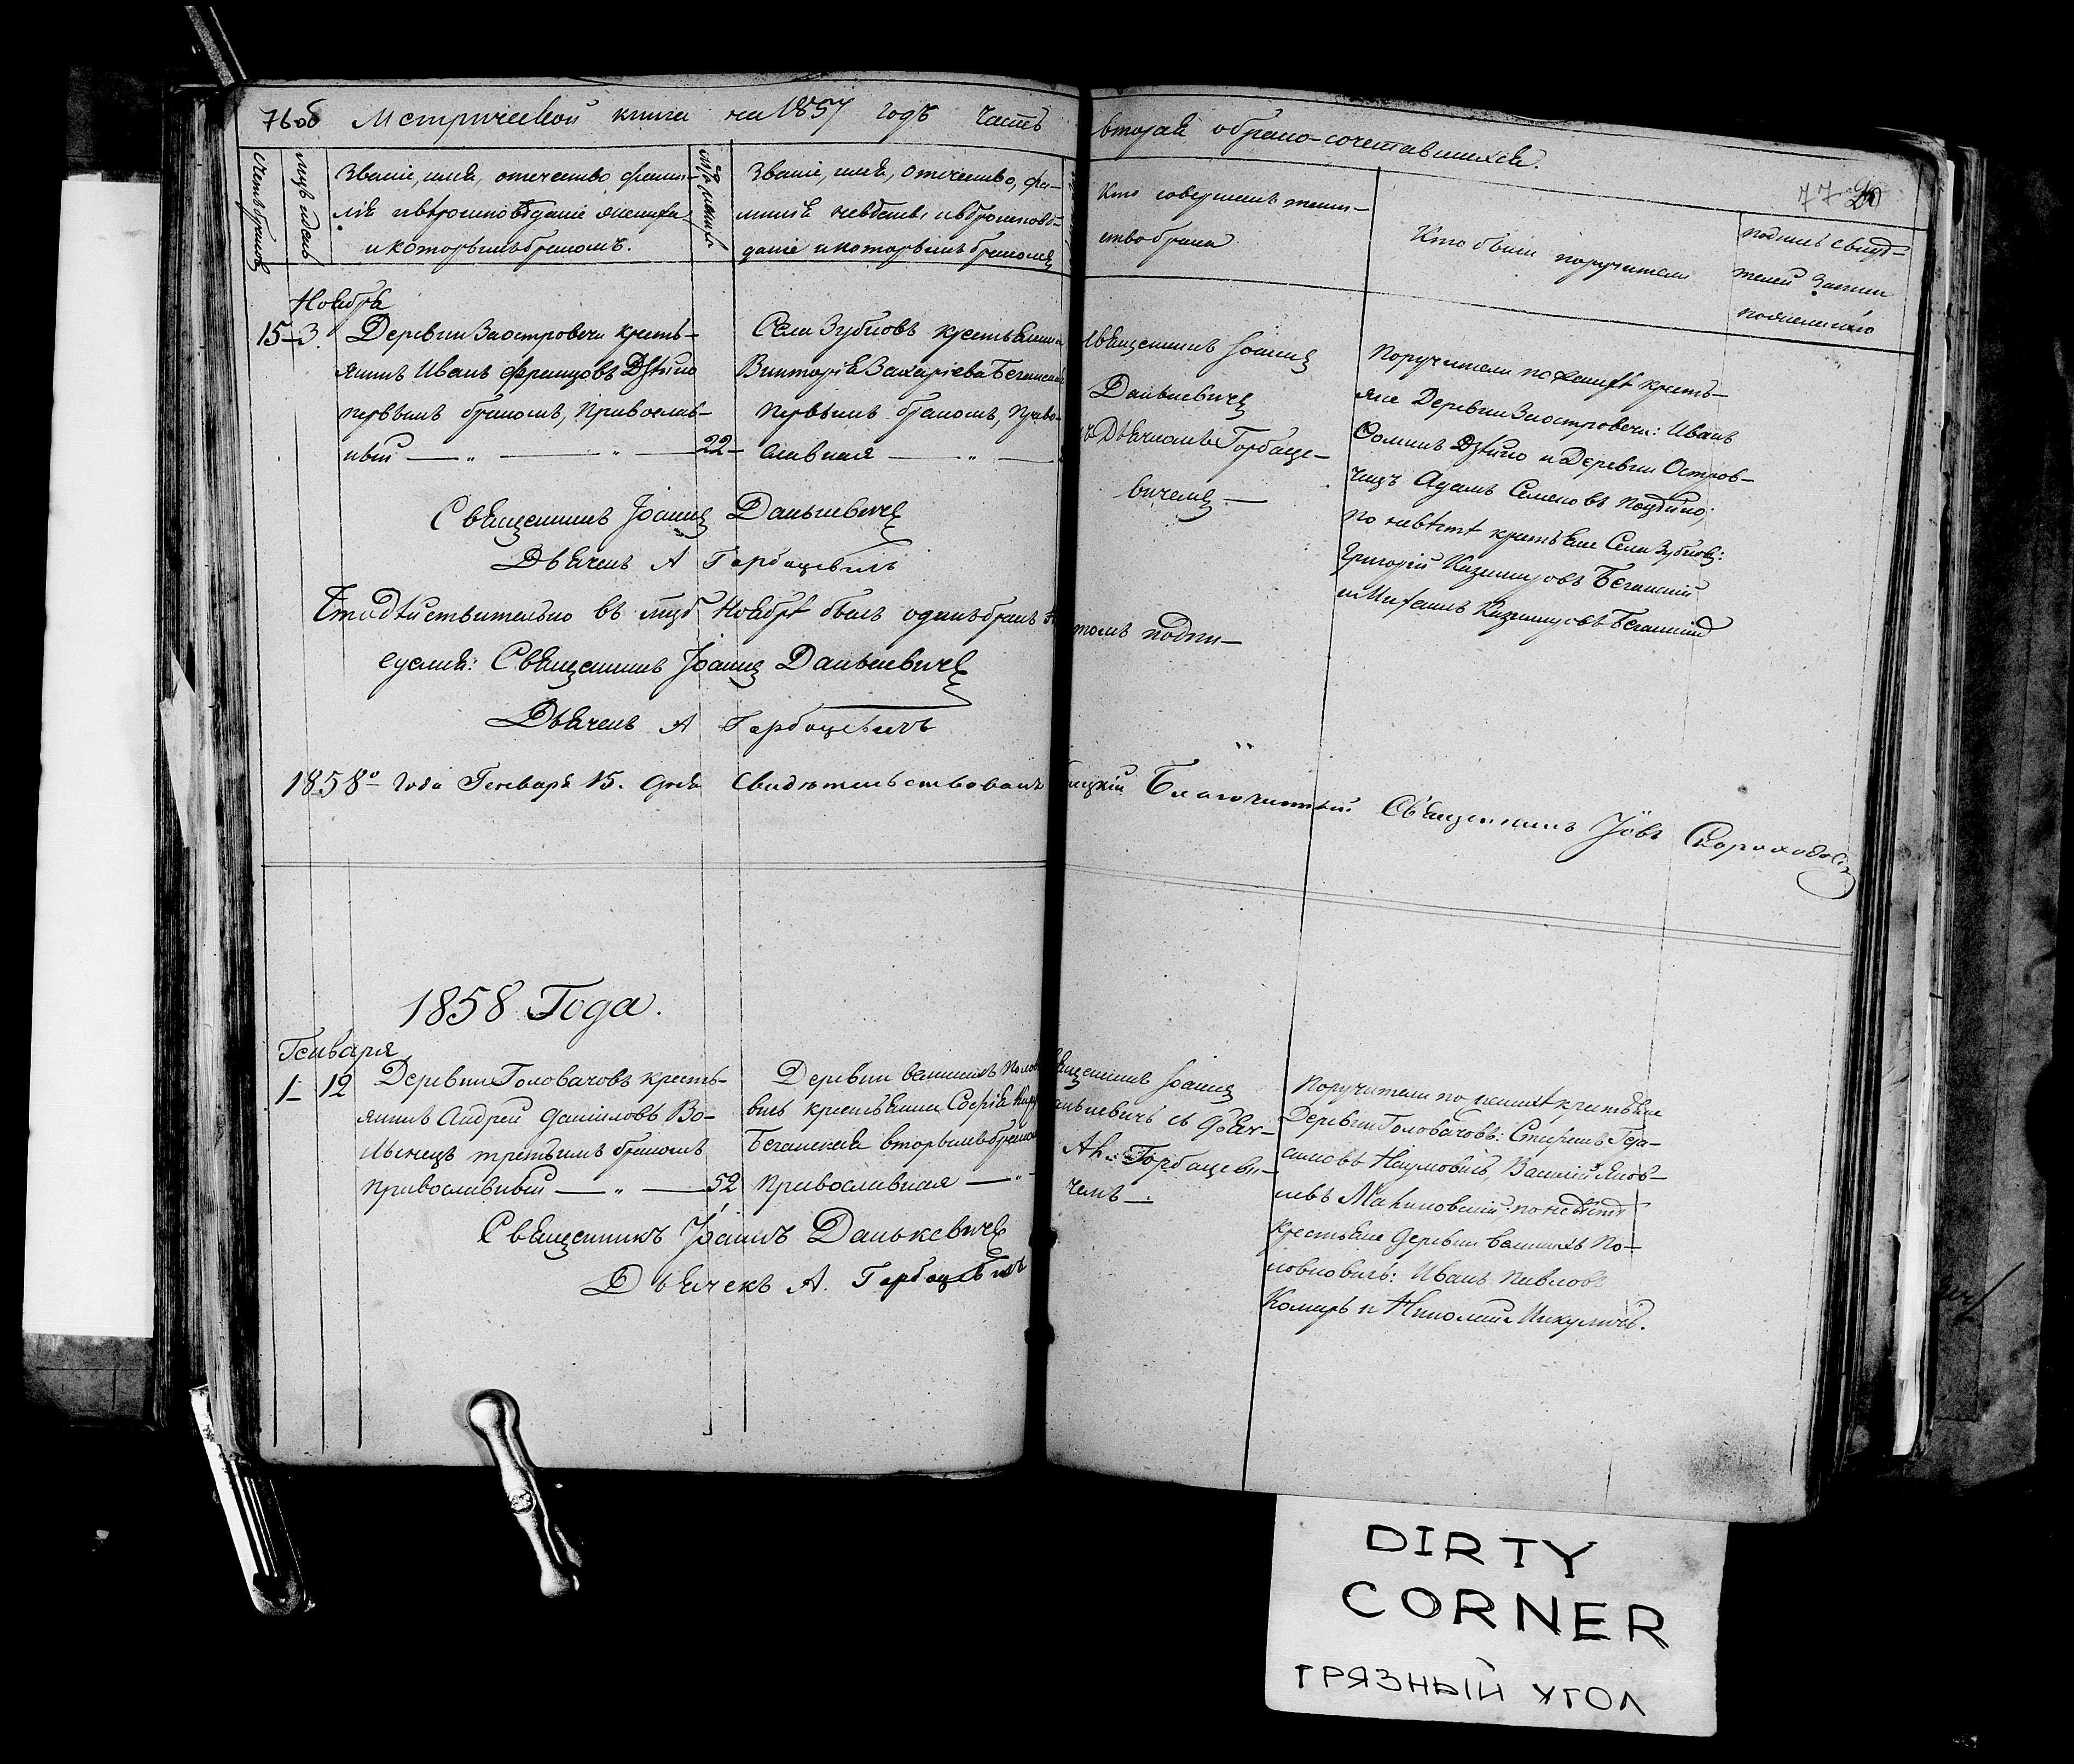 76об Метрической книги на 1857 годъ Часть
вторая о брако-сочетавшихся.
77
Счетъ браковъ
Мцъ и день
Званіе, имя, отечество фами-
лія и вѣроисповѣданіе жениха
и которымъ бракомъ.
Званіе, имя, отечество, фа-
милія невѣсты, и вѣроисповѣ-
даніе и которымъ бракомъ
Кто совершалъ таин-
ство брака
Кто были поручители
подпись свидѣ-
телей записи
по желанію
Ноября
15 – 3.
Деревни Заостровечи кресть-
янинъ Иванъ Францовъ
первымъ бракомъ, Православ-
ный — „ — „ — 22 –
Села Зубковъ крестьянка
Викторія Захаріева Беганская
первымъ бракомъ, Право-
славная — „ —
Священникъ Іоаннъ
Данькевичъ
съ Дьячкомъ Горбаце-
вичемъ —
Поручители по женихѣ кресть-
яне Деревни Заостровечи: Иванъ
Ѳоминъ и Деревни Остров-
чицъ Адамъ Семеновъ
по невѣстѣ крестьяне Села Зубковъ:
Григорій Казимировъ Беганскій
и Казимировъ Беганскій
Священникъ Іоаннъ Данькевичъ
Дьячекъ А Горбацевичъ
Что дѣйствительно въ мцѣ Ноябрѣ былъ одинъ бракъ
томъ подпи-
суемся: Священникъ Іоаннъ Данькевичъ
Дьячекъ А Горбацевичъ
1858го Года Генваря 15. Дня Свидѣтельствовалъ
Благочинный Священникъ Іовъ
1858 Года.
Генваря
1 – 12
Деревни Головачовъ кресть-
янинъ Андрей Даниловъ Во-
лынецъ третьимъ бракомъ
Православный — „ — 52
Деревни Великихъ
вичъ крестьянка Софія
Беганская вторымъ бракомъ
Православная — „ -
Священникъ Іоаннъ
Данькевичъ съ Дьяч-
Ан. Горбацеви-
чемъ —.
Поручители по женихѣ крестьяне
Деревни Головачовъ: Стефанъ Гера-
симовъ Наумовичъ, Василій Яков-
левъ по невѣстѣ
крестьяне Деревни Великихъ По-
ловковичъ: Иванъ Павловъ
Комаръ и Николай Микуличъ.
Священникъ Іоаннъ Данькевичъ
Дьячекъ А. Горбацевичъ
DIRTY
CORNER
ГРЯЗНЫЙ УГОЛ